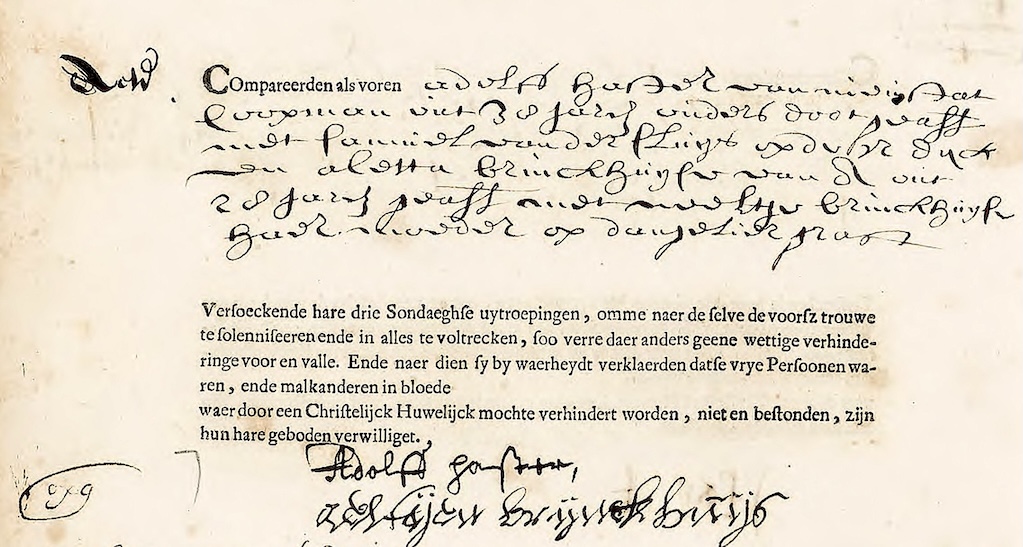 COmpareerden als voren adolff haster van
coopman out 38 Jaren ouders doot geass
met Samuel van der sluijs op de dijck
en aletta brinckhuijse van A out
28 Jaren geass met brinckhuijse
haer moeder op d angeliers graft
Versoeckende hare drie Sondaeghse uytroepingen, omme naer de selve de voorsz trouwe
te solenniseeren ende in alles te voltrecken, soo verre daer anders geene wettige verhinde-
ringe voor en valle. Ende naer dien sy by waerheydt verklaerden datse vrye Persoonen wa-
ren, ende malkanderen in bloede
waer door een Christelijck Huwelijck mochte verhindert worden, niet en bestonden, zijn
hun hare geboden verwilliget.
Adolff haster,
aeltijen brijnckhuijs